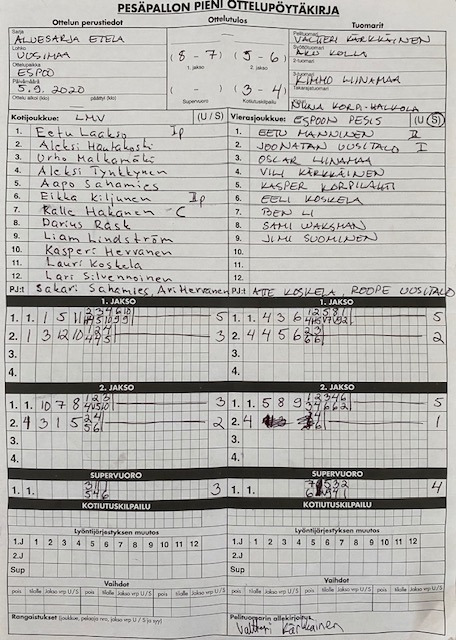 PESÄPALLON PIENI OTTELUPÖYTÄKIRJA
Ottelun perustiedot
Ottelutulos
Tuomarit
Sarja
ALUESARJA ETELÄ
Lohko
UUSIMAA
Ottelupaikka
ESPOO
Päivämäärä
5.9.2020
Ottelu alkoi (klo) päättyi (klo)
(8 - 7) (5 - 6)
1. jakso 2. jakso
( - ) (3 - 4)
Supervuoro Kotiutuskilpailu
Pelituomari
VALTTERI KÄRKKÄINEN
Syöttötuomari
AKU KOLLA
2-tuomari
3-tuomari
KIMMO LIINAMAA
Takarajatuomari
KORPI-HALKOLA
Kotijoukkue: LMV (U / S)
1. Eetu Laakso Ip
2. Aleksi Hautakoski
3. Urho Malkamäki
4. Aleksi Tynkkynen
5. Aapo Sahamies
6. Eikka Kiljunen IIp
7. Kalle Hakanen C
8. Darius Rask
9. Liam Lindström
10. Kasperi Hervanen
11. Lauri Koskela
12. Lari Silvennoinen
PJ:t Sakari Sahamies, Ari Hervanen
Vierasjoukkue: ESPOON PESIS (U / S)
1. EETU MANNINEN II
2. JOONATAN UUSITALO I
3. OSCAR LIINAMAA
4. VILI KÄRKKÄINEN
5. KASPER KORPILAHTI
6. EELI KOSKELA
7. BEN LI
8. SAMI WAKSMAN
9. JIMI SUOMINEN
10.
11.
12.
PJ:t ATE KOSKELA, ROOPE UUSITALO
1. JAKSO
1. 1. 1 5 11 5
2. 1 3 12 10 3
3.
4.
1. JAKSO
1. 1. 4 3 6 5
2. 4 4 5 6 2
3.
4.
2. JAKSO
1. 1. 10 7 8 3
2. 1 3 1 5 2
3.
4.
2. JAKSO
1. 1. 5 8 9 5
2. 4 1
3.
4.
SUPERVUORO
1. 1. 3
SUPERVUORO
1. 1. 4
KOTIUTUSKILPAILU
KOTIUTUSKILPAILU
Lyöntijärjestyksen muutos
1.J 1 2 3 4 5 6 7 8 9 10 11 12
2.J
Sup
Lyöntijärjestyksen muutos
1.J 1 2 3 4 5 6 7 8 9 10 11 12
2.J
Sup
Vaihdot
pois tilalle Jakso vrp U / S pois tilalle Jakso vrp U / S
Vaihdot
pois tilalle Jakso vrp U / S pois tilalle Jakso vrp U / S
Rangaistukset (joukkue, pelaaja nro, jakso vrp U / S ja syy)
Pelituomarin allekirjoitus
Valtteri Kärkkäinen